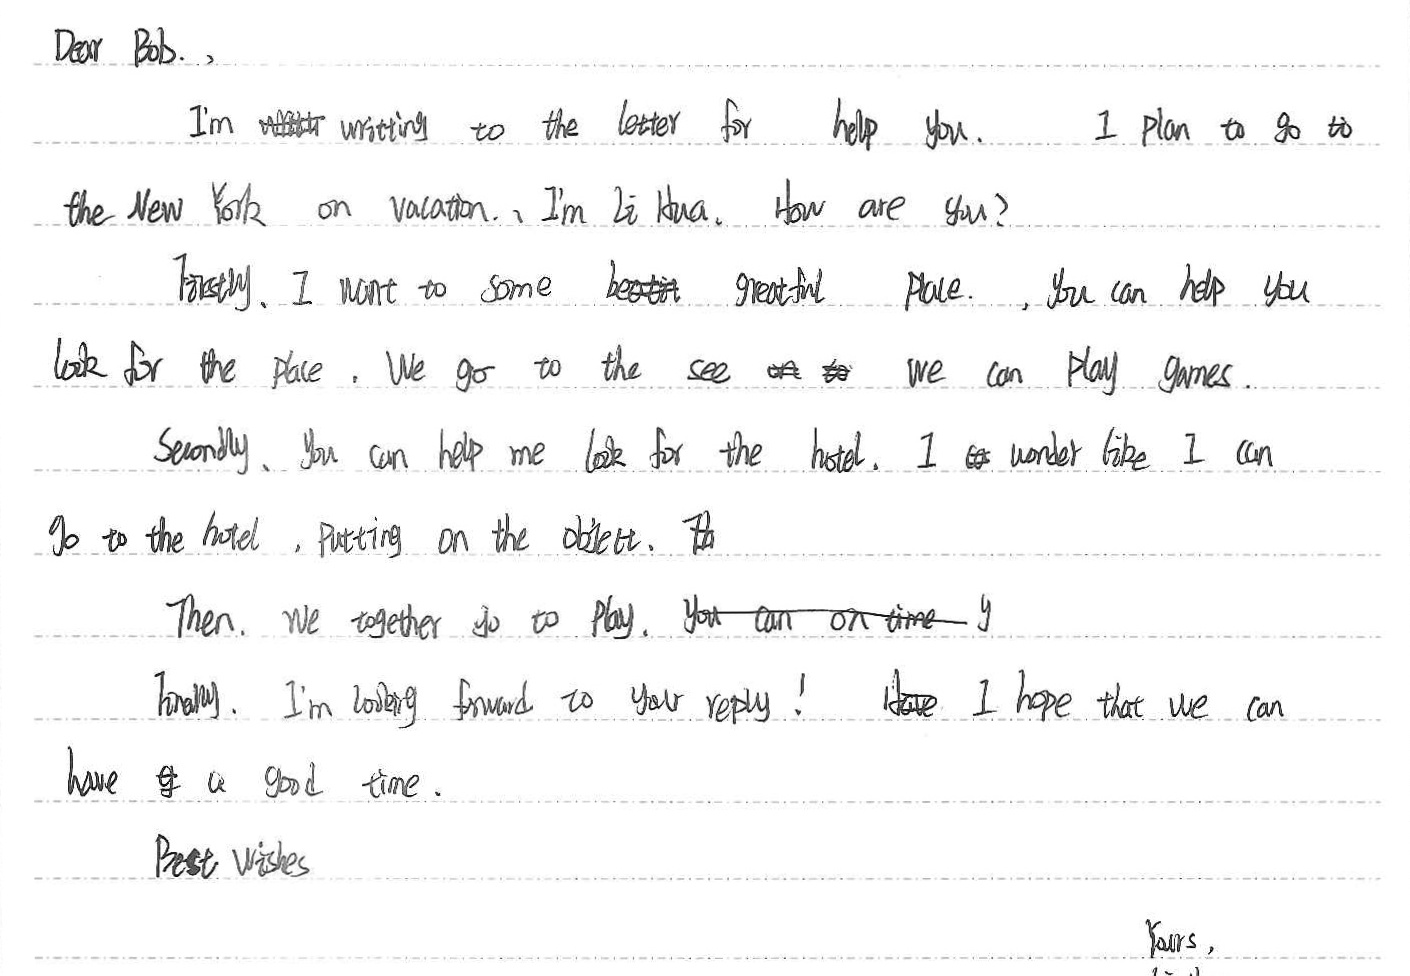 Dear Bob.,
I'm writting to the letter for help you. I plan to go to
the New York on vacation., I'm Li Hua. How are you?
Firstly, I want to some greatful place., you can help you
look for the place. We go to the see we can play games.
Secondly, you can help me look for the hotel. I wonder like I can
go to the hotel, putting on the objectt.
Then. We together go to play. You can on time y
Finally. I'm looking forward to your reply! I hope that we can
have a good time.
Best Wishes
Yours,